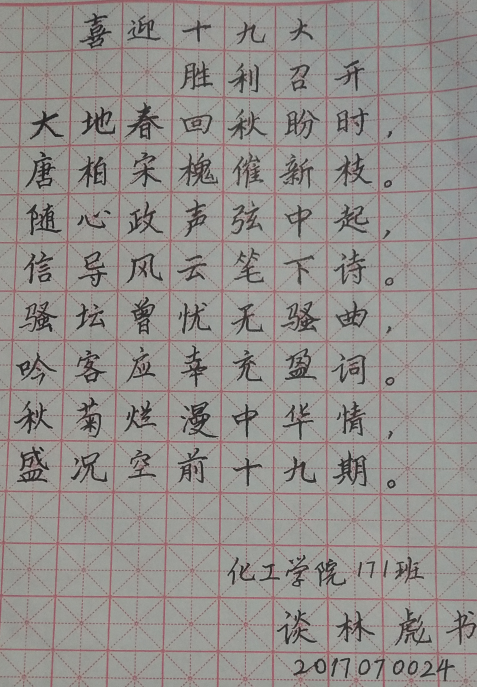 喜迎十九大
胜利召开
大地春回秋盼时，
唐柏宋槐催新枝。
随心政声弦中起，
信导风云笔下诗。
骚坛曾忧无骚曲，
吟客应幸充盈词。
秋菊烂漫中华情，
盛况空前十九期。
化工学院171班
谈林彪书
2017070024